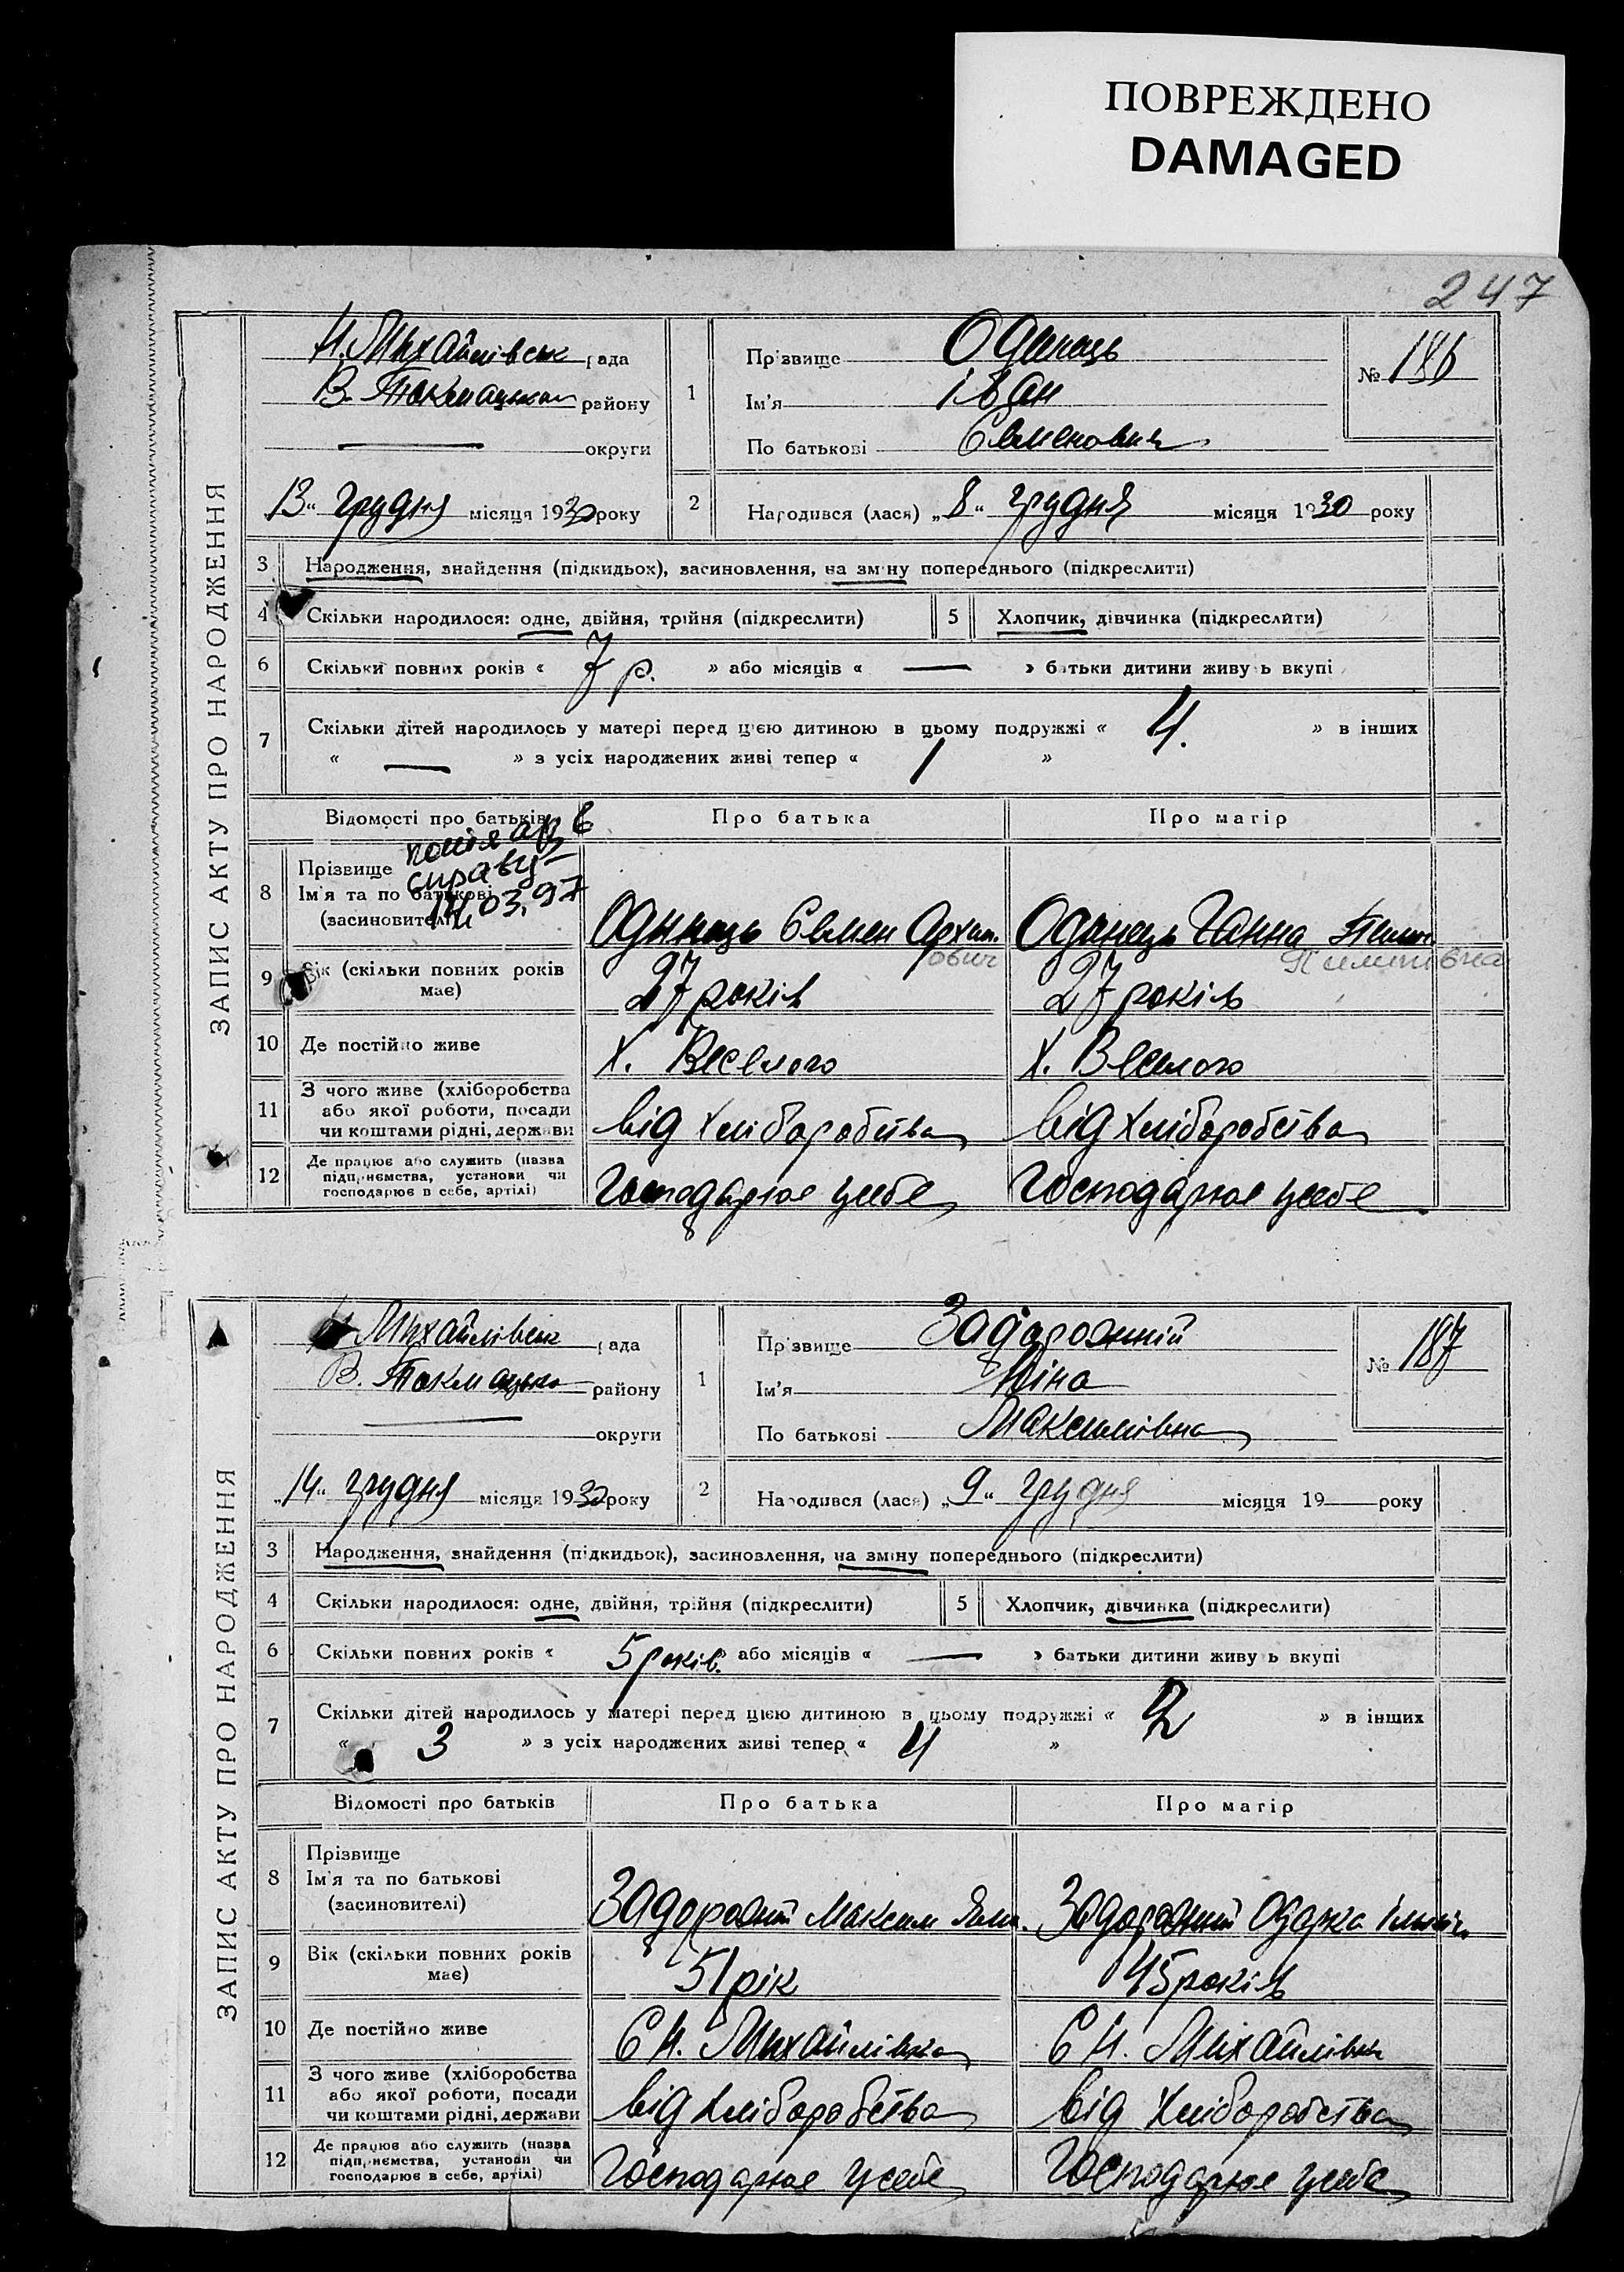 ПОВРЕЖДЕНО
DAMAGED
247
ЗАПИС АКТУ ПРО НАРОДЖЕННЯ
Н. Михайлівськ рада
В. Токмацьком району
округи
13 " грудня місяця 1930 року
1
Прізвище Одинець
Ім'я Іван
По батькові Семенович
№ 186
2
Народився (лася) „ 8 " грудня місяця 1930 року
3 Народження, знайдення (підкидьох), засиновлення, на зміну попереднього (підкреслити)
4 Скільки народилося: одне, двійня, трійня (підкреслити)
5 Хлопчик, дівчинка (підкреслити)
6 Скільки повних років « 7 р. » або місяців « — » батьки дитини живуть вкупі
7 Скільки дітей народилось у матері перед цією дитиною в цьому подружжі « 4. » в інших
« — » з усіх народжених живі тепер « 1 »
Відомості про батьків
Про батька
Про матір
копія а/з в
справу
14.03.97
8 Прізвище
Ім'я та по батькові
(засиновителі)
Одинець Семен Архип.
ович
Одинець Ганна Пилип.
Пилипівна
9 Вік (скільки повних років
має)
27 років
27 років
10 Де постійно живе
х. Веселого
х. Веселого
11 З чого живе (хліборобства
або якої роботи, посади
чи коштами рідні, держави
від хліборобства
від хліборобства
12 Де працює або служить (назва
підприємства, установи чи
господарює в себе, артілі)
Господарює усебе
Господарює усебе
ЗАПИС АКТУ ПРО НАРОДЖЕННЯ
Михайлівськ рада
В. Токмацько району
округи
„ 14 " грудня місяця 1930 року
1
Прізвище Задорожній
Ім'я Ніна
По батькові Максимівна
№ 187
2
Народився (лася) „ 9 " грудня місяця 19 — року
3 Народження, знайдення (підкидьок), засиновлення, на зміну попереднього (підкреслити)
4 Скільки народилося: одне, двійня, трійня (підкреслити)
5 Хлопчик, дівчинка (підкреслити)
6 Скільки повних років « 5 років. або місяців « — » батьки дитини живуть вкупі
7 Скільки дітей народилось у матері перед цією дитиною в цьому подружжі « 2 » в інших
« 3 » з усіх народжених живі тепер « 4 »
Відомості про батьків
Про батька
Про матір
8 Прізвище
Ім'я та по батькові
(засиновителі)
Задорожній Максим
Задорожній Одарка
9 Вік (скільки повних років
має)
51 рік
45 років
10 Де постійно живе
С Н. Михайлівка
С Н. Михайлівка
11 З чого живе (хліборобства
або якої роботи, посади
чи коштами рідні, держави
від хліборобства
від хліборобства
12 Де працює або служить (назва
підприємства, установи чи
господарює в себе, артілі)
Господарює усебе
Господарює усебе